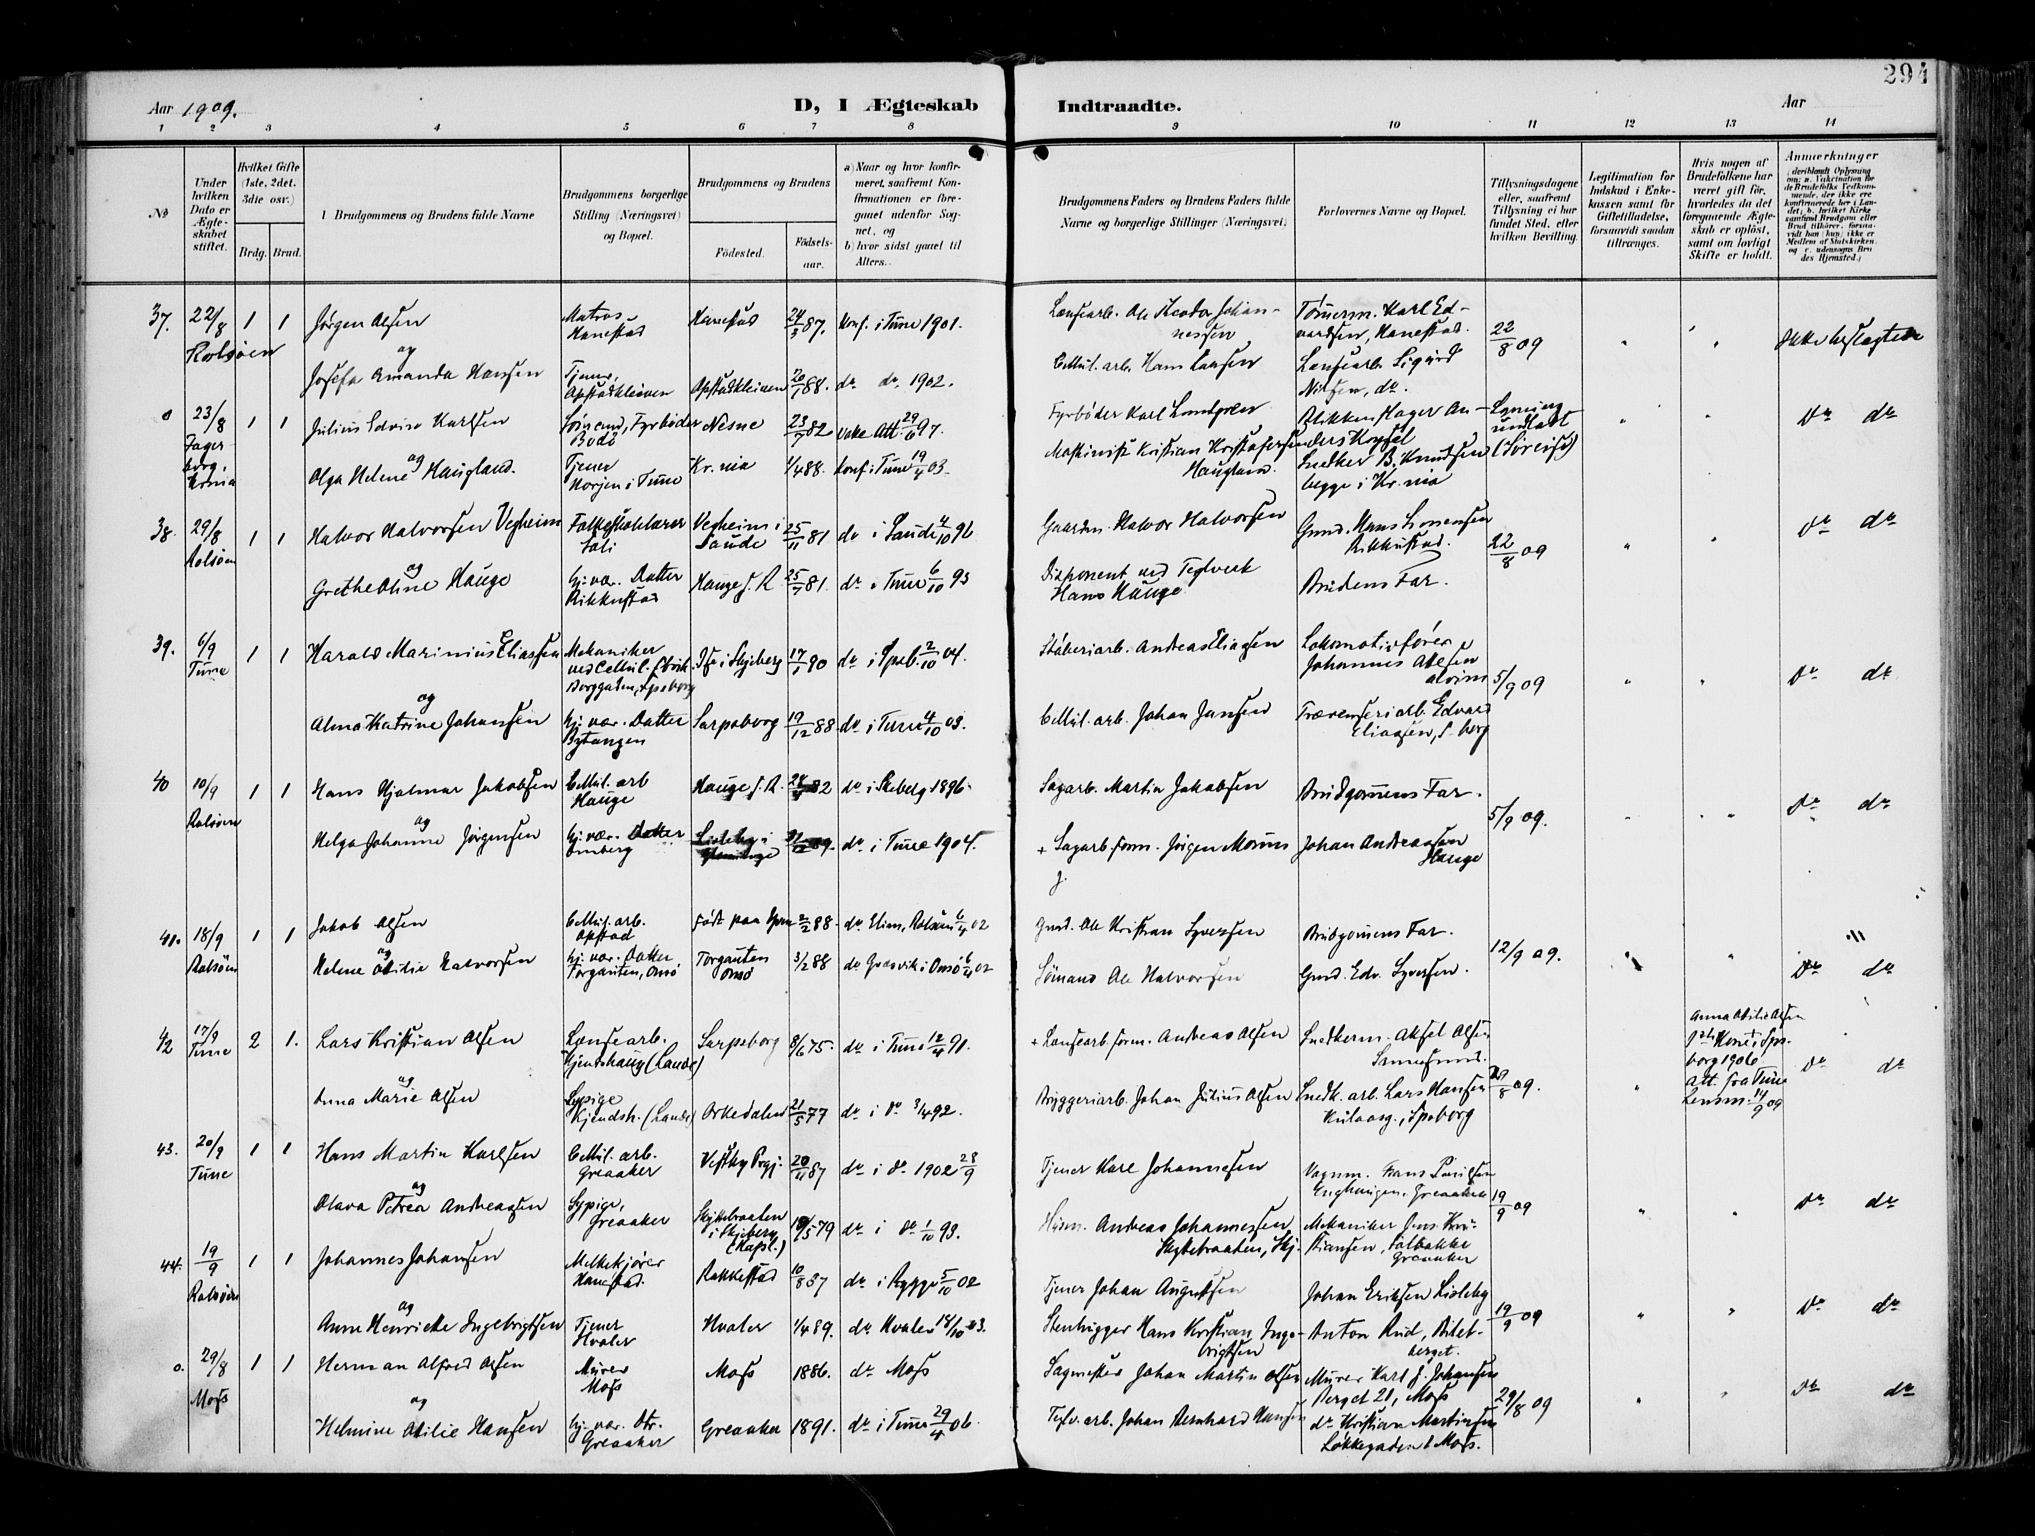 294
Aar 1909.
D, I Ægteskab Indtraadte.
Aar
1 2 3 4 5 6 7 8 9 10 11 12 13 14
No
Under hvilken Dato er Ægteskabet stiftet.
Hvilket Gifte (1ste, 2det. 3die osv.)
Brdg. Brud.
Brudgommens og Brudens fulde Navne
Brudgommens borgerlige Stilling (Næringsvei) og Bopæl.
Brudgommens og Brudens
Fødested.
Fødselsaar.
a) Naar og hvor konfirmeret, saafremt Konfirmationen er foregaaet udenfor Sognet, og
b) hvor sidst gaaet til Alters.
Brudgommens Faders og Brudens Faders fulde Navne og borgerlige Stillinger (Næringsvei)
Forlovernes Navne og Bopæl.
Tillysningsdagene eller, saafremt Tillysning ei har fundet Sted, efter hvilken Bevilling.
Legitimation for Indskud i Enkekassen samt for Giftetilladelse, forsaavidt saadan tiltrænges.
Hvis nogen af Brudefolkene har været gift før, hvorledes da det foregaaende Ægteskab er opløst, samt om lovligt Skifte er holdt.
Anmerkninger
37. 22/8 1 1 Jørgen Olsen Matros Hanestad Hanestad 24/3 87. Konf. i Tune 1901. Lænsearb. Ole Teodor Johannessen Tømerm. Karl Edvardsen, Hanestad. 22/8 09 Ikke beslægtede
Rolsøen
og
Josefa Amanda Hansen Tjener, Opstadkleiven Opstadkleiven 88. do do 1902. Cellul. arb. Hans Lænsearb. Sigurd Nilsen, do.
0 23/8 1 1 Julius Edvin Karlsen Sømand, Fyrbøder Bodø Nesne 23/7 82 Att. 29/6 97. Fyrbøder Karl Lundgren Blikkenslager Anders do do
Fagerborg, Krnia
og
Olga Helene Haugland. Tjener Norjen i Tune Kr.nia 1/4 88. konf i Tune 19/4 03. Maskinist Kristian Kristofersen Haugland Snedker B. Knudsen begge i Kr. nia
38. 29/8 1 1 Halvor Halvorsen Vegheim Folkeskolelærer Vegheim i Saude 25/11 81 do i Saude 4/10 96 Gaardm. Halvor Halvorsen Gmd. Hans Simensen Rikkestad. 22/8 09 do do
Rolsøen
og
Grethe Oline Hauge hj. vær. Datter Rikkestad Hauge f. R 25/7 81. do i Tune 6/10 95 Disponent ved Teglverk Hans Hauge Brudens Far.
39. 6/9 1 1 Harald Marinius Eliassen Mekaniker ved Cellul. fabrik. Borggaden, Spsborg i Skjeberg 17/1 90 do i Spsb. 2/10 04. Støberiarb. Andreas Eliassen Lokomotivfører Johannes Olsen Alvim 5/9 09 do do
Tune
og
Alma Katrine Johansen hj. vær. Datter Bytangen Sarpsborg 19/12 88 do i Tune 4/10 03. Cellul. arb. Johan Jansen Træsenseriarb. Edvard Eliassen, S-borg
40 10/9 1 1 Hans Hjalmar Jakobsen Cellul. arb Hauge Hauge f. R. 82 do i Skeberg 1896. Sagarb. Martin Jakobsen Brudgomens Far. 5/9 09. do do
Rolsøen
og
Helga Johanne Jørgensen hj. vær. Datter Lisleby i Glemminge 89. do i Tune 1904. + Sagarb. form. Jørgen Johan Andreassen Hauge
41. 18/9 1 1 Jakob Olsen Cellul. arb. Opstad Født paa 2/2 88. do Rolsøen 6/4 02 Gmd. Ole Kristian Syversen Brudgomens Far. 12/9 09.
Rolsøen
og
Helene Otilie Halvorsen hj. vær. Datter Torgauten, Onsø Torgauten Onsø 3/2 88 do Græsvik i Onsø 6/4 02 Sømand Ole Halvorsen Gmd. Edv. Syversen. do do
42 17/9 2 1. Lars Kristian Olsen Lænsearb. Kjendshaug (Lande) Sarpsborg 8/6 75. do i Tune 12/4 91. + Lænsearb. form. Andreas Olsen Snedkerm. Aksel Olsen Anna Otilie Olsen borg 1906 Att. fra Tune Lensm. 19/9 09 do do
Tune
og
Anna Marie Olsen Sypige Kjendsh. (Lande) Orkedalen 21/5 77 do i do 3/4 92. Bryggeriarb. Johan Julius Olsen Snedk. arb. Lars Hansen Kulaasg. i Spsborg 09.
43. 20/9 1 1 Hans Martin Karlsen Cellul. arb. Greaaker Vestby Prgj. 20/11 87 do i do 1902 28/9 Tjener Karl Johannesen Vognm. Frans Paulsen Greaaker 19/9 09 do do
Tune
og
Olava Petrea Andreassen Sypige, Greaaker Skjeberg 18/5 79 do i do 1/10 93. Andreas Johannessen Mekaniker Jens Kristiansen, Greaaker
44. 19/9 1 1 Johannes Johansen Melkekjører Hanestad. Rakkestad 10/8 87 do i Rygge 5/10 02 Tjener Johan Augustsen Johan Eriksen Lisleby 19/9 09 do do
Rolsøen
og
Anne Henriette Ingebrigtsen Tjener Hvaler Hvaler 1/4 89. do Hvaler 18/10 03. Stenhugger Hans Kristian Ingebrigtsen Anton Rud, berget.
0. 29/8 1 1 Herman Alfred Olsen Murer Moss Moss 1886. do Moss Sagmester Johan Martin Olsen Murer Karl J. Johansen Berget 21, Moss 29/8 09 do do
Moss
og
Helmine Otilie Hansen hj. vær. Dtr. Greaaker Greaaker 1891. do i Tune 29/4 06. Teglv. arb. Johan Bernhard Hansen do Kristian Martinsen Løkkegaden Moss.